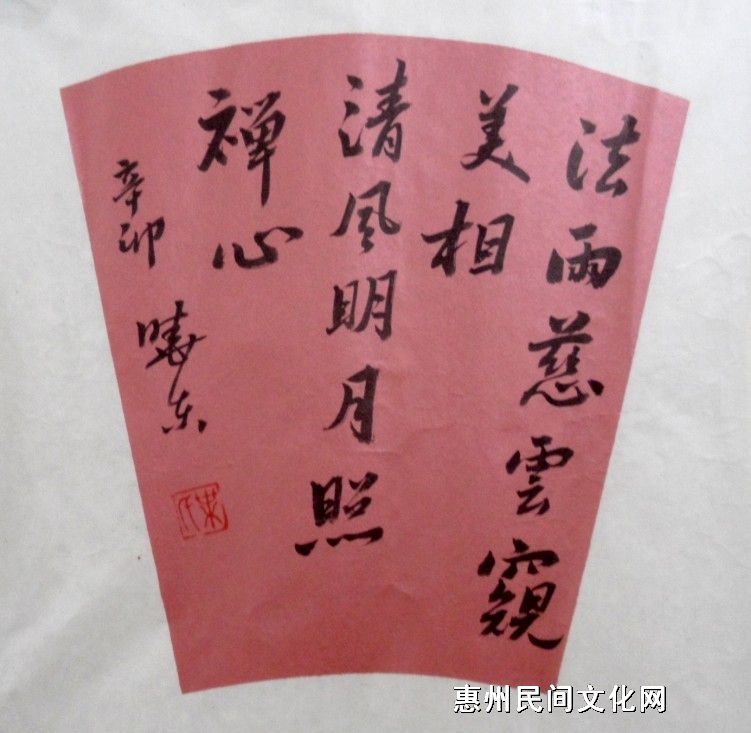 法雨慈雲窺
美相
清風明月照
禅心
辛卯
晓东
惠州民间文化网